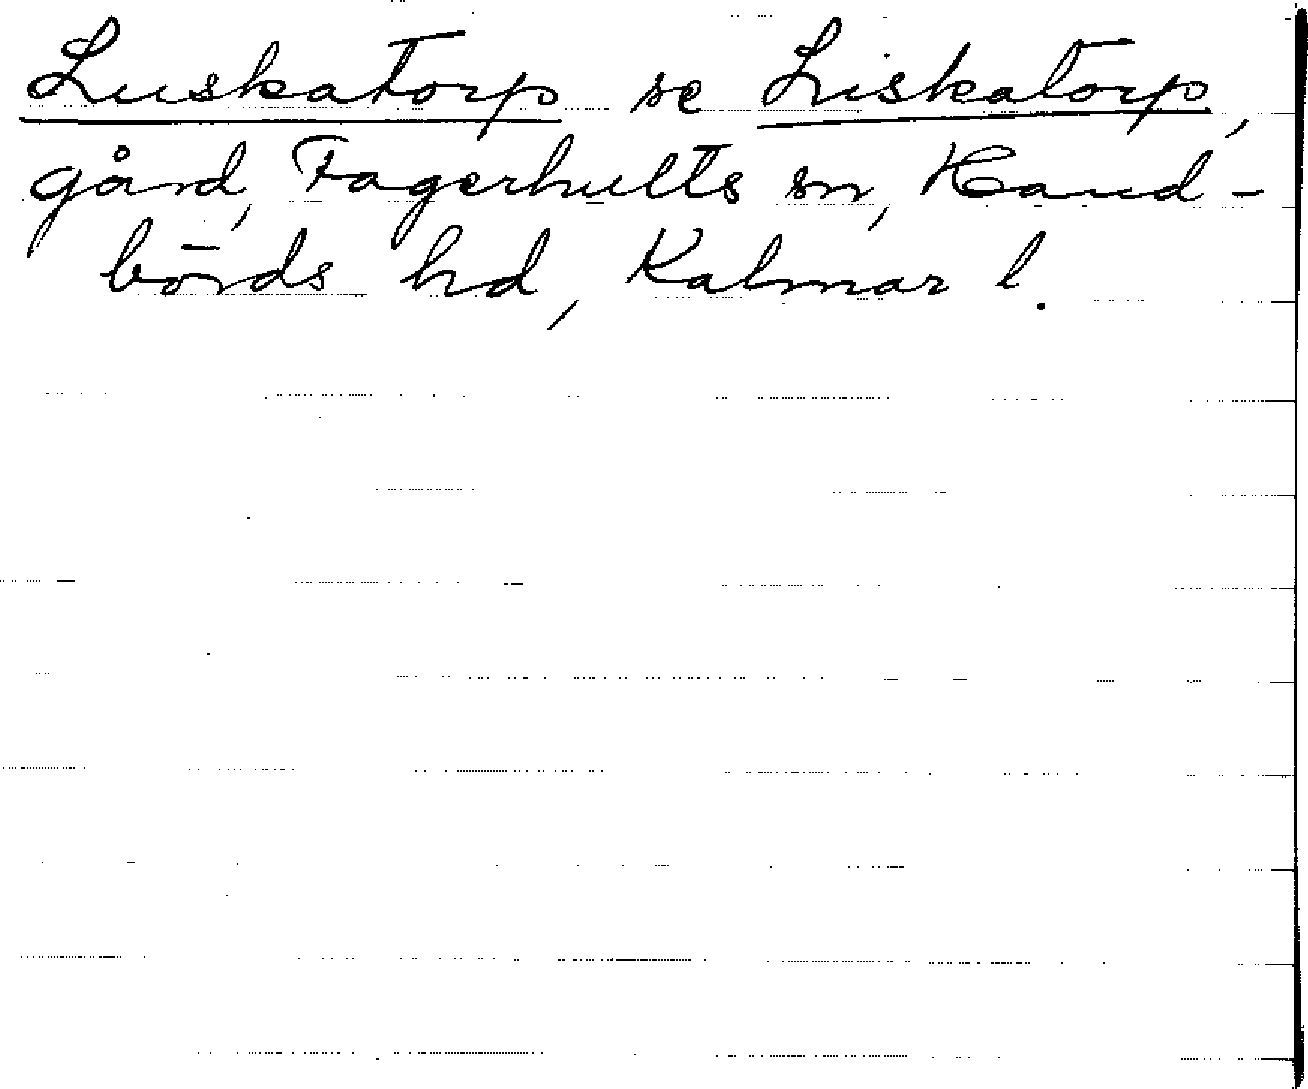 Luskatorp se Liskatorp,
gård, Fagerhults sn, Hand-
börds hd, Kalmar l.